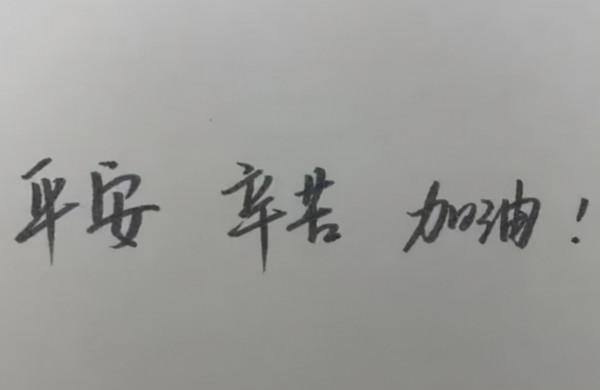 平安 辛苦 加油!